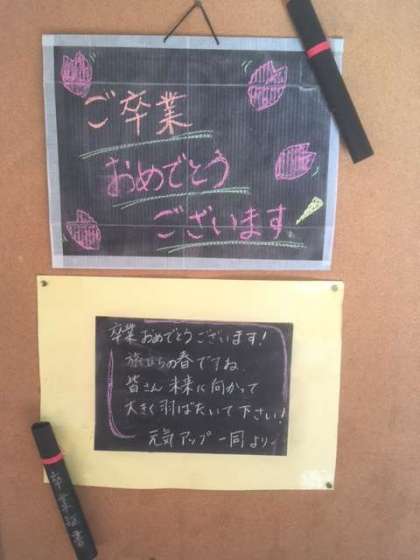 ご卒業
おめでとう
ございます!
卒業おめでとうございます!
旅立ちの春ですね
皆さん 未来に向かって
大きく羽ばたいて下さい!
元気アップ一同より
卒業証書